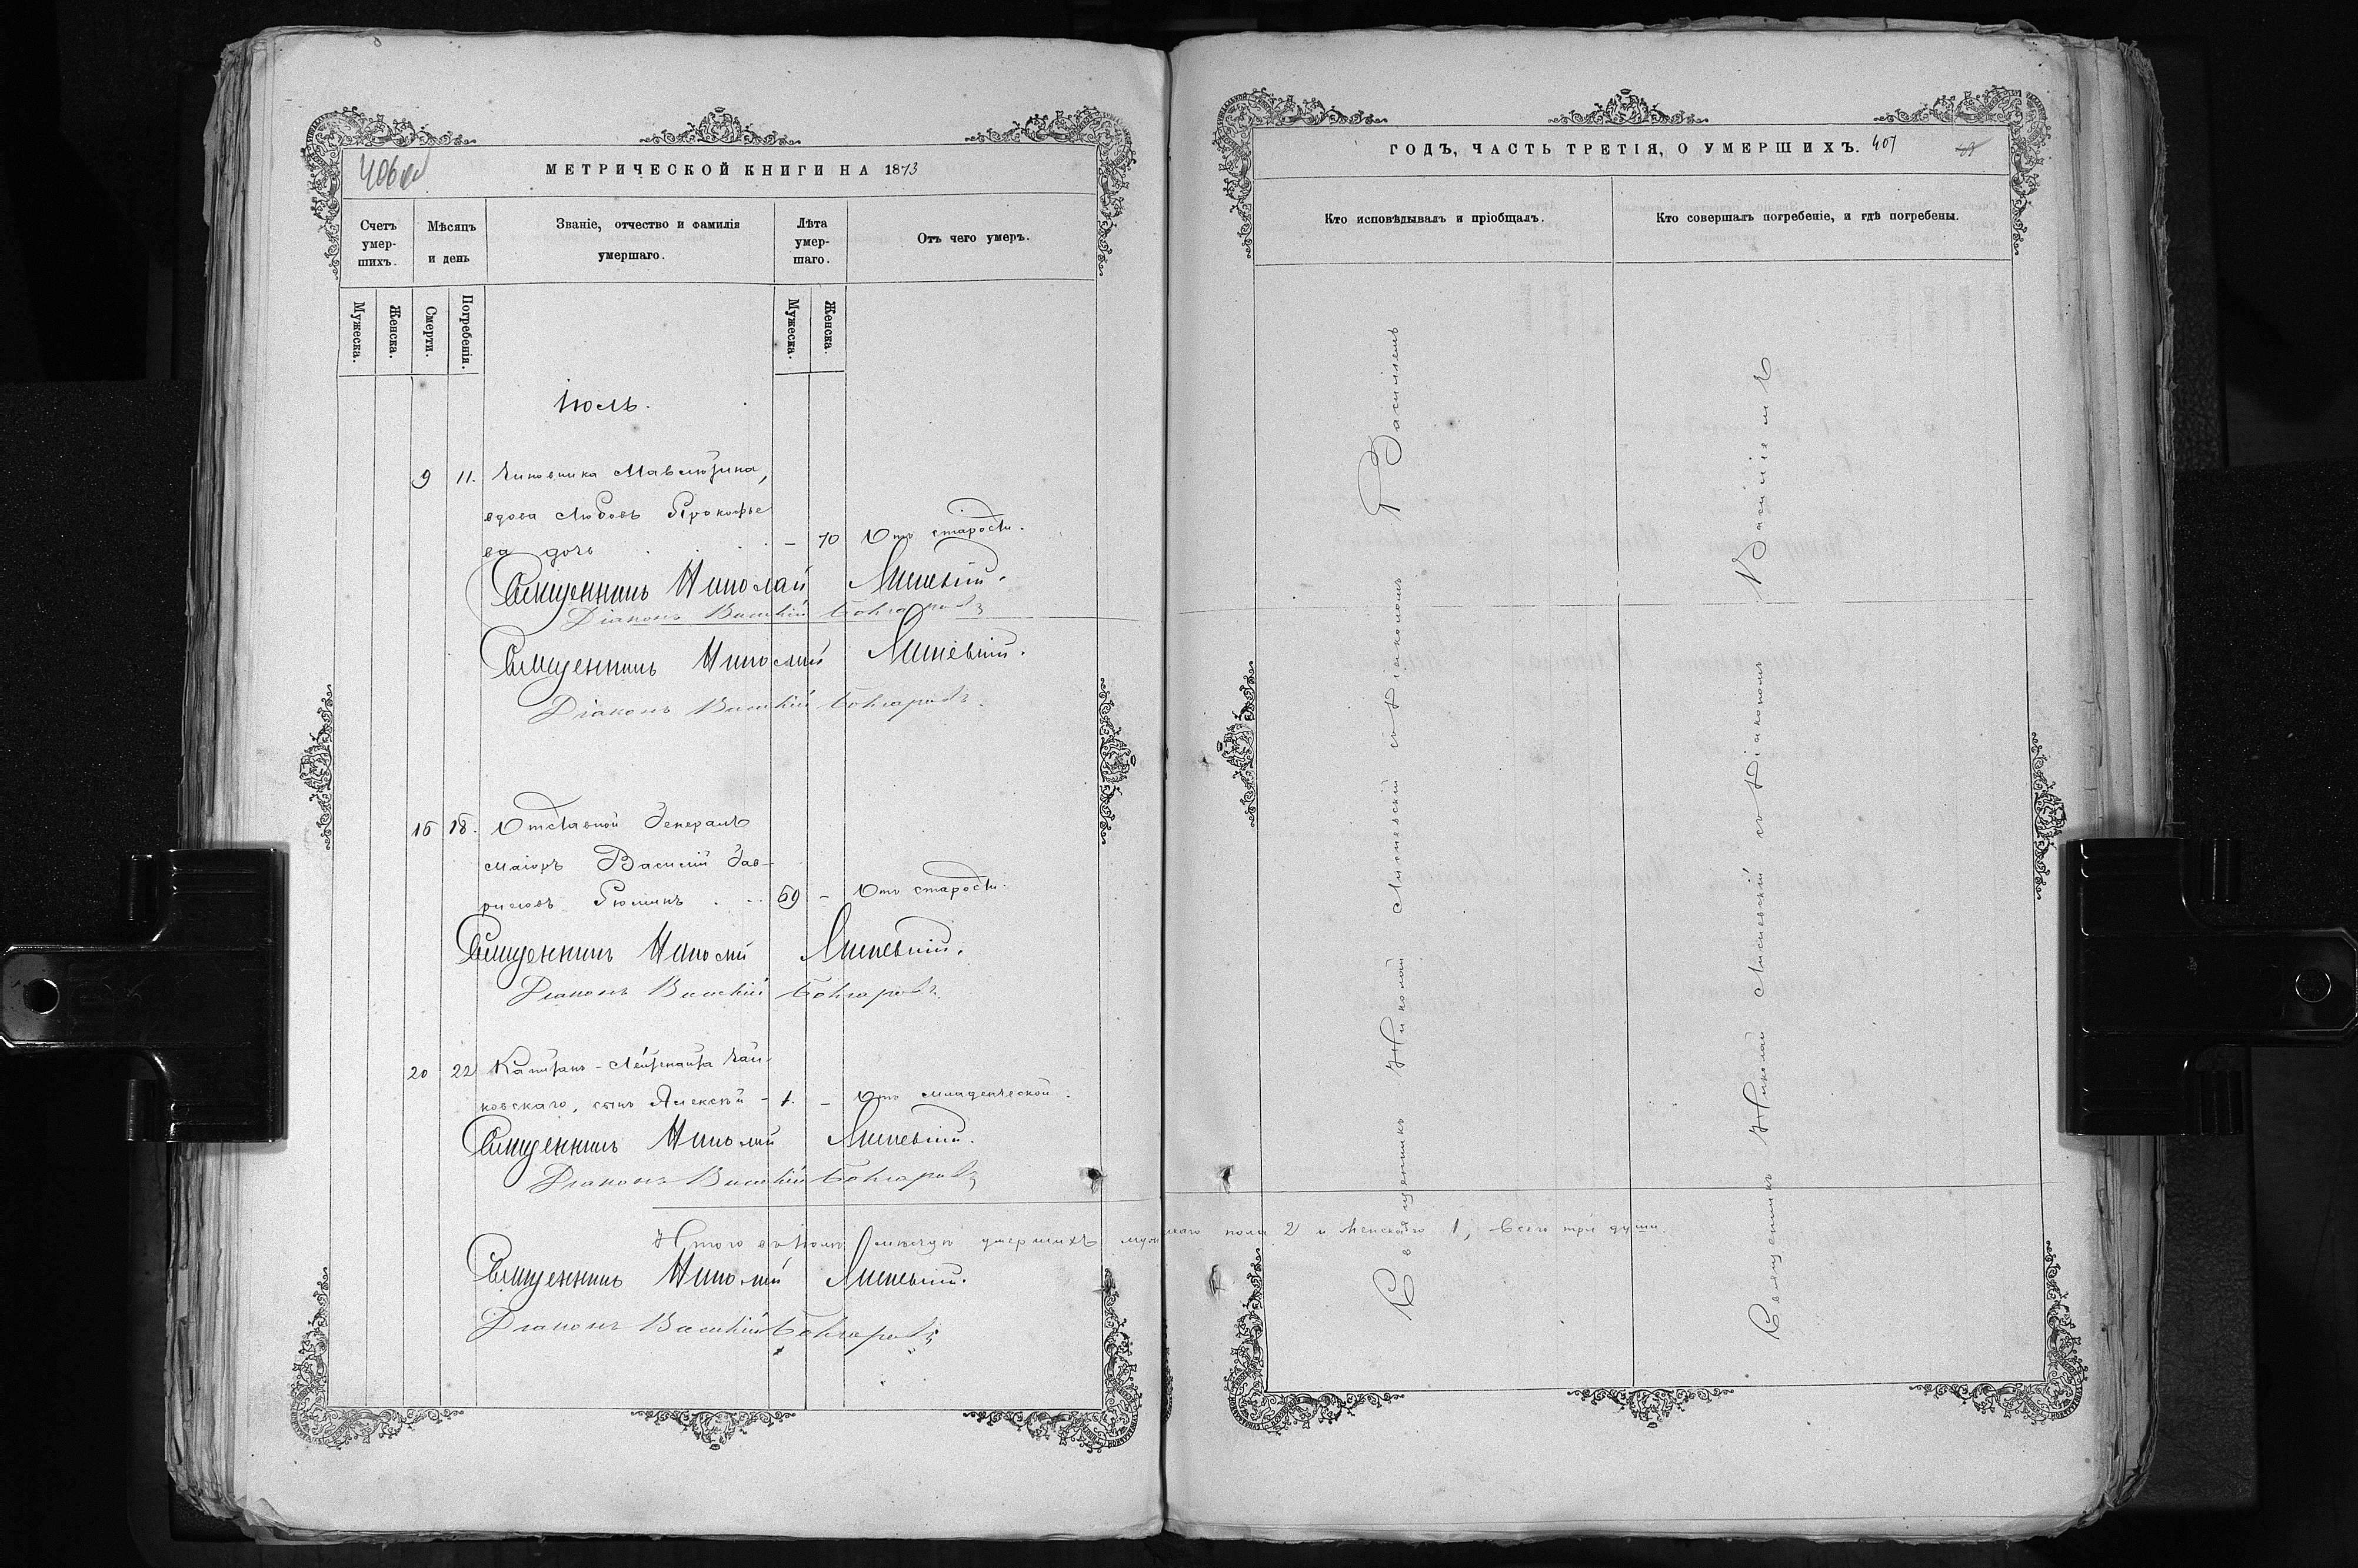 406об
МЕТРИЧЕСКОЙ КНИГИ НА 1873
Счетъ умер-шихъ.
Мѣсяцъ и день
Званіе, отчество и фамилія умершаго.
Лѣта умер-шаго.
Отъ чего умеръ.
Мужеска.
Женска.
Смерти.
Погребенія.
Мужеска.
Женска.
Іюль.
9 11. Чиновника
вдова Любовь Прокофье
ва дочь - 70 Отъ старости.
Священникъ Николай
Діаконъ Василій
Священникъ Николай
Діаконъ Василій
16 18. Отставной Генералъ
маіоръ Василій Гав-
риловъ Рюминъ 69 - Отъ старости.
Священникъ Николай
Діаконъ Василій
20 22 Капитанъ-Лейтенанта Чай-
ковскаго, сынъ Алексѣй - 1. - Отъ младенческой.
Священникъ Николай
Діаконъ Василій
Итого въ Іюлѣ мѣсяцѣ умершихъ мужескаго пола 2 и женскаго 1, всего три души.
Священникъ Николай
Діаконъ Василій
ГОДЪ, ЧАСТЬ ТРЕТІЯ, О УМЕРШИХЪ. 407
Кто исповѣдывалъ и пріобщалъ.
Кто совершалъ погребеніе, и гдѣ погребены.
Священникъ Николай со Діакономъ Василіемъ
Священникъ Николай со Діакономъ Василіемъ